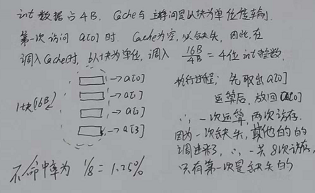 int 数据占4B. Cache与主存间是以块为单位传输.
第一次访问 a[0] 时 Cache为空, 必缺失, 因此, 在
调入Cache时, 以块为单位, 调入 16B/4B = 4位 int 整数.
1块(16B)
→a[0]
→a[1]
→a[2]
→a[3]
执行过程: 先取出 a[0]
运算后, 放回 a[0]
∴ 一次运算, 两次访存.
因为一次缺失, 其他的
调进来了, ∴ 一共8次访存,
只有第一次是缺失的
不命中率为 1/8 = 1.25%